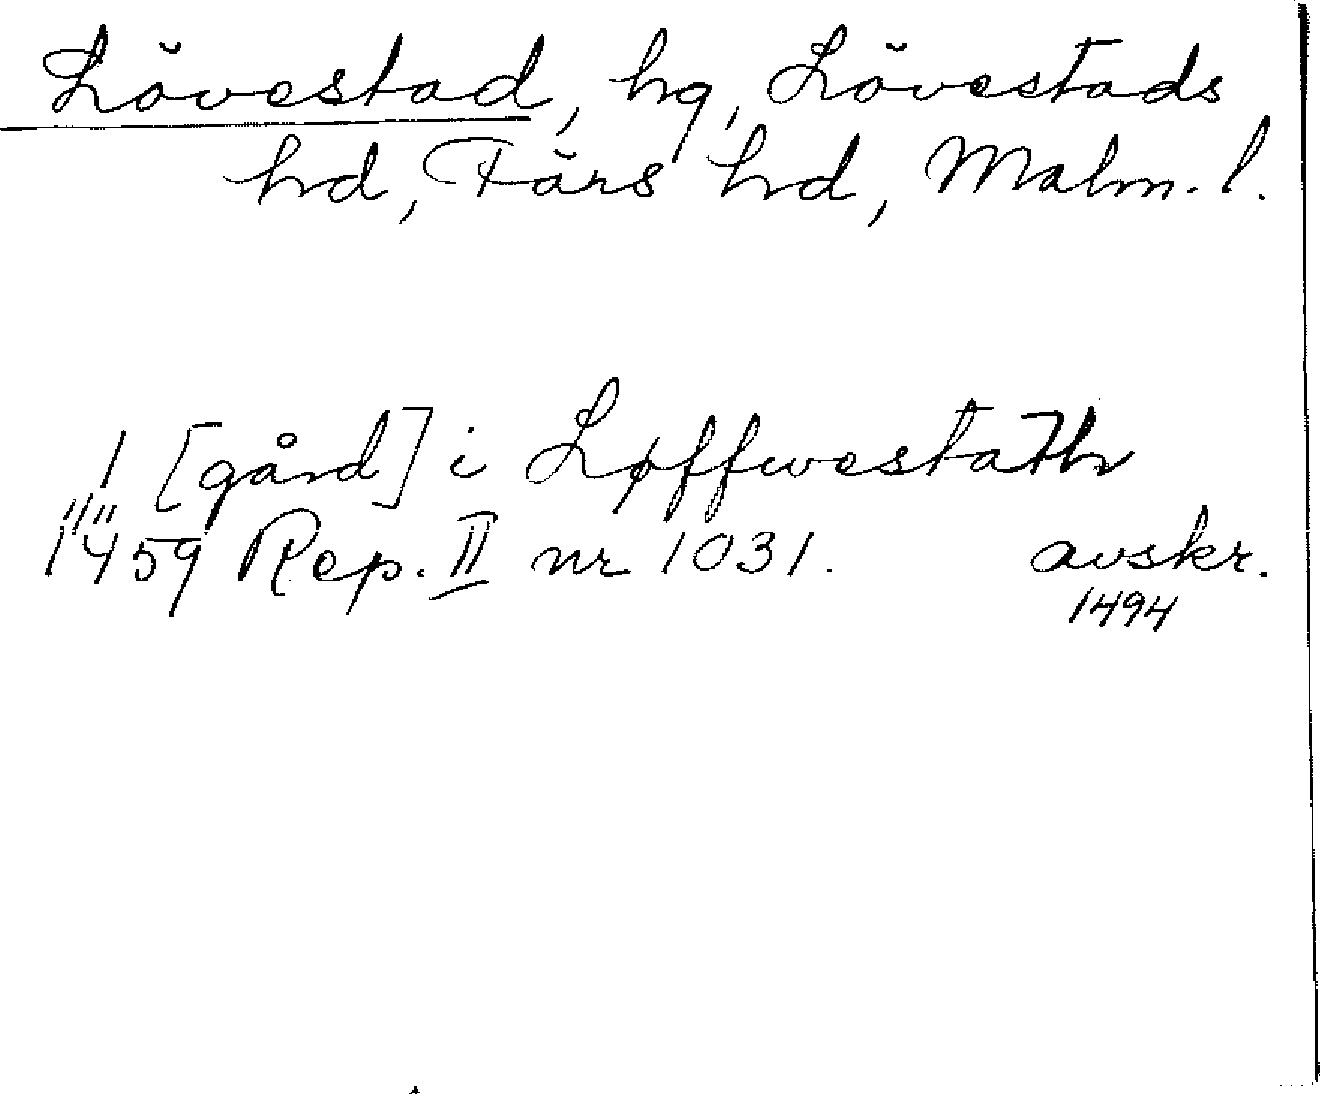 Lövestad, hg, Lövestads
hd, Färs hd, Malm. l.
1 [gård] i Løffwestath
11/11
1459 Rep. II nr 1031. avskr.
1494